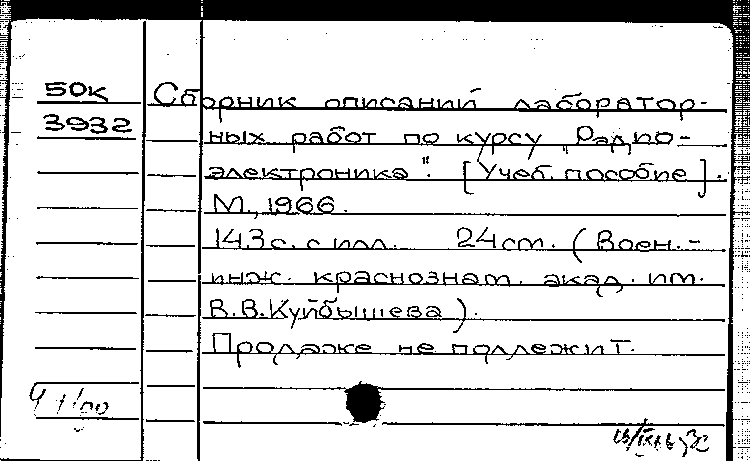 50К
3932
Сборник описаний лаборатор-
ных работ по курсу „Радио-
электроника“. [Учеб. пособие].
М., 1966.
143с. с илл. 24см. (Воен.-
инж. краснознам. акад. им.
В.В. Куйбышева).
Продаже не подлежит.